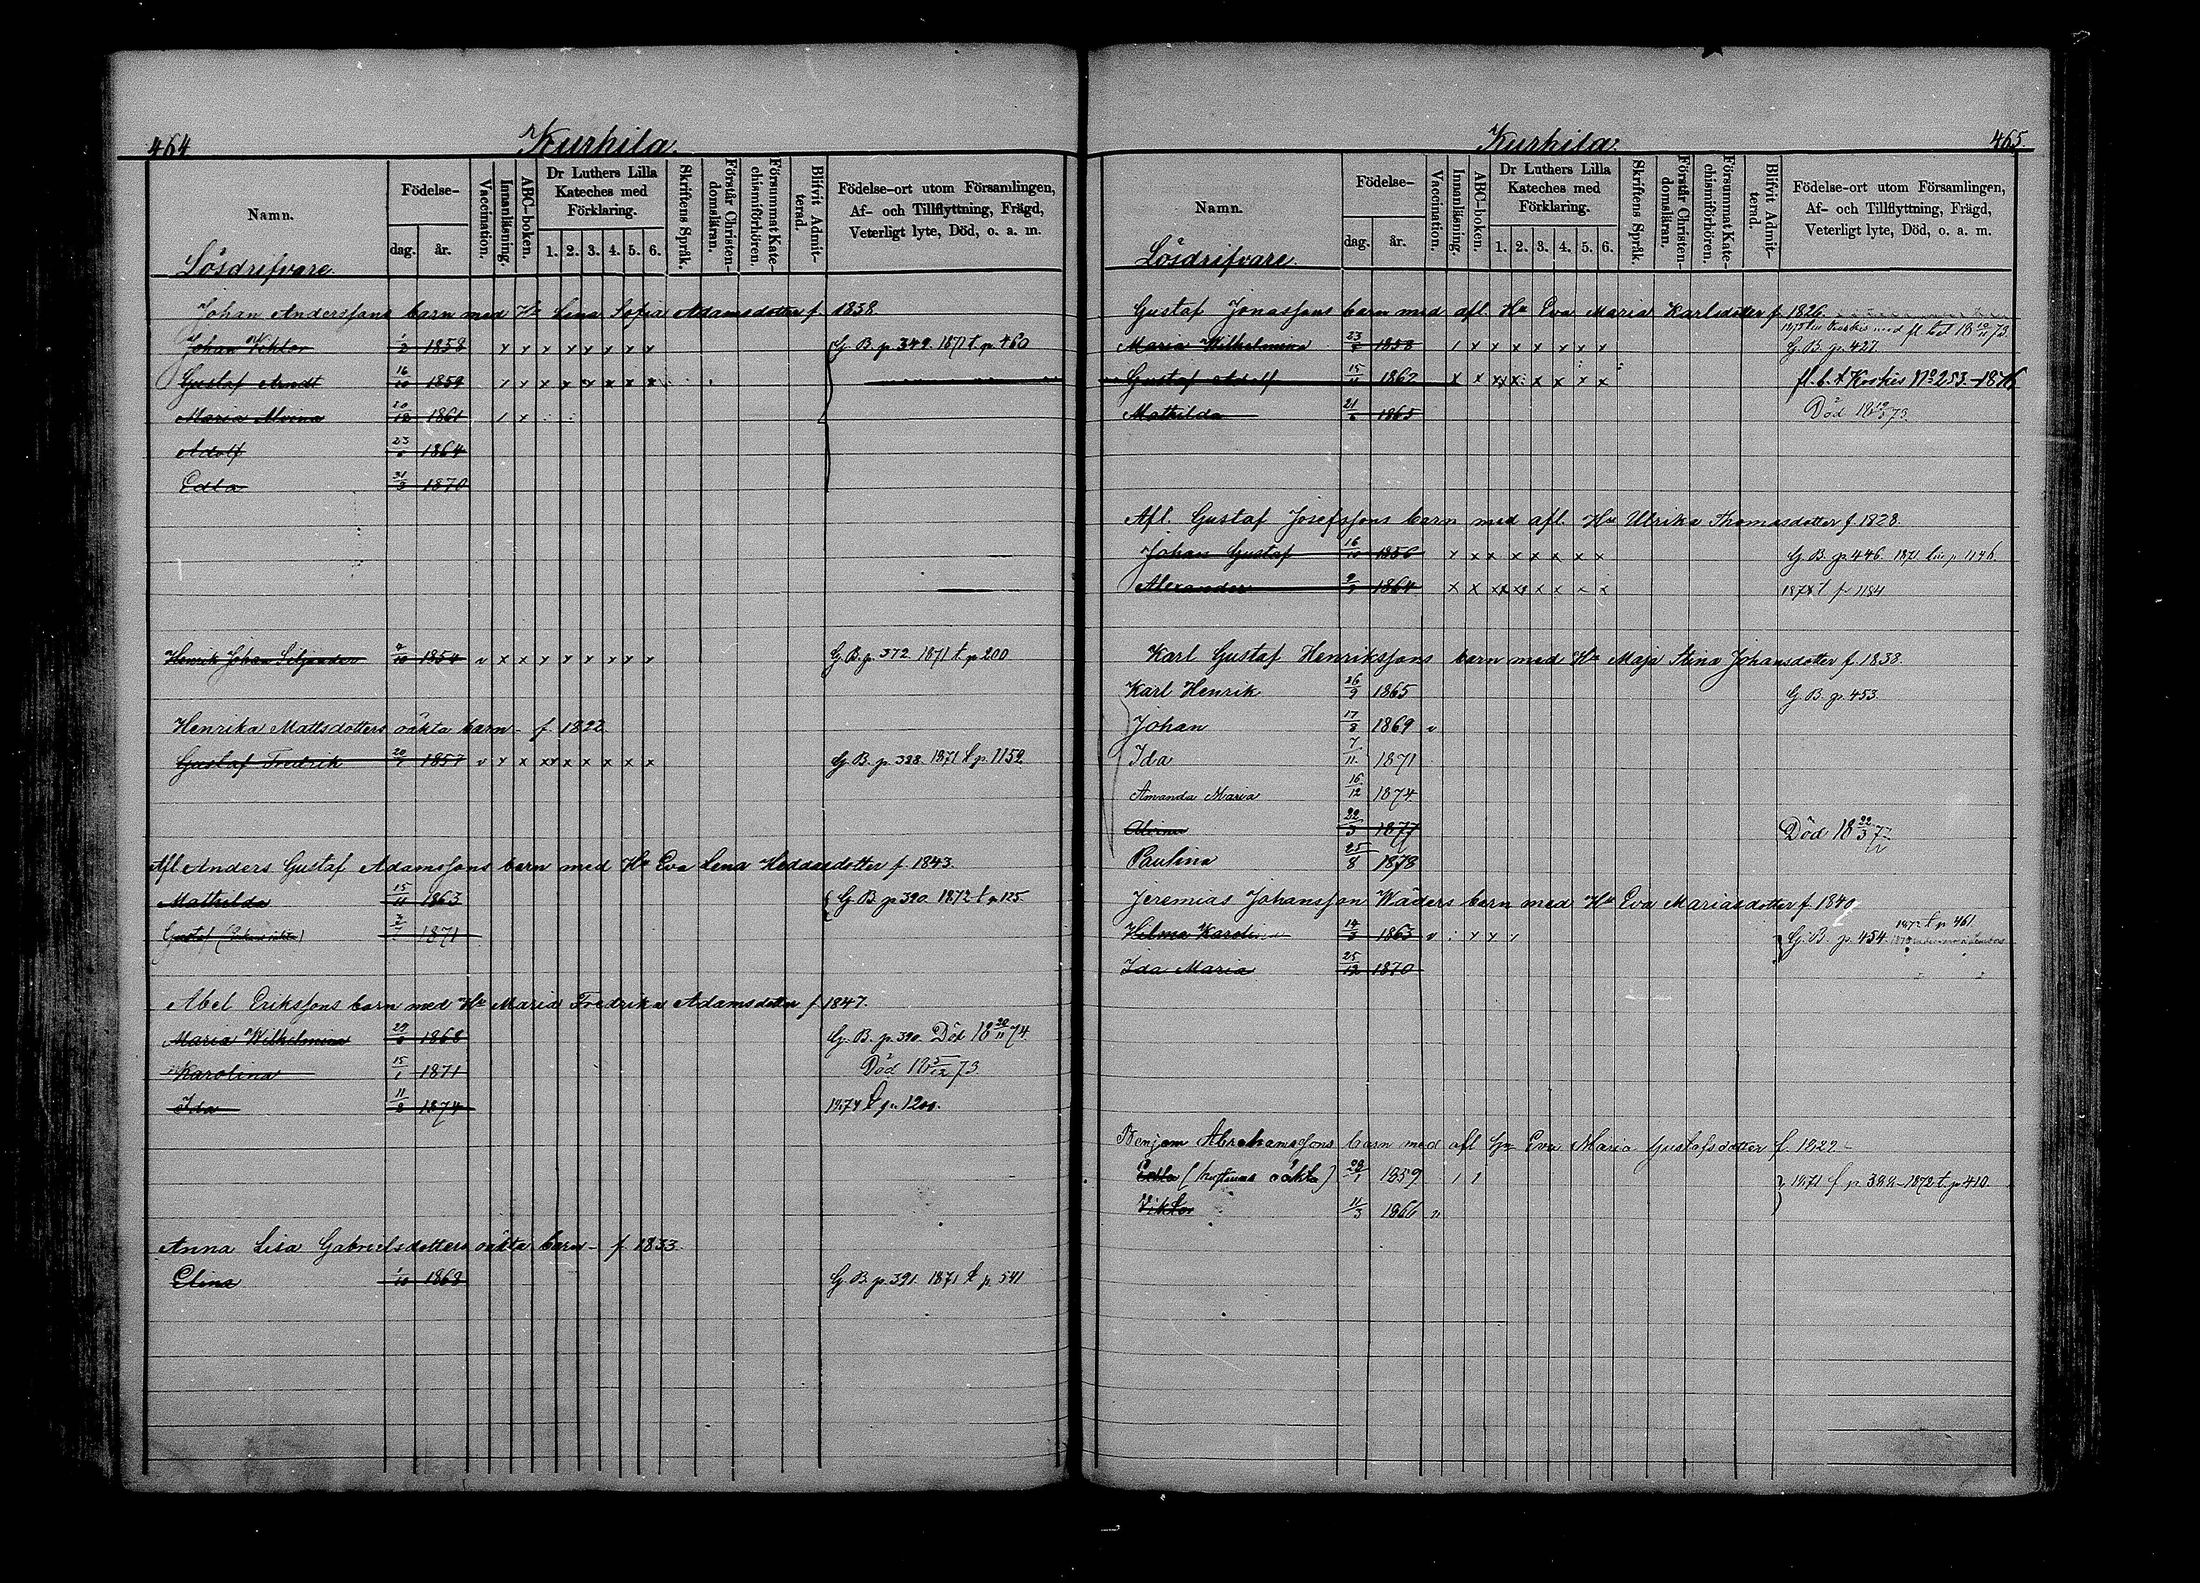 464
Kurhila.
Namn.
Födelse-
dag. år.
Vaccination.
Innanläsning.
ABC-boken.
Dr Luthers Lilla Kateches med Förklaring.
1. 2. 3. 4. 5. 6.
Skriftens Språk.
Förstår Christendomsläran.
Försummat Katechismiförhören.
Blifvit Admitterad.
Födelse-ort utom Församlingen, Af- och Tillflyttning, Frägd, Veterligt lyte, Död, o. a. m.
Lösdrifvare
Johan Anderssons barn med Hu Lina Sofia Adamsdotter f. 1838.
Johan Viktor 1858 G. B. p. 349. t. p. 460
Gustaf 16/10 1859
Maria 20/12 1861
Adolf 1864
Edla 31/3 1870
Henrik Johan 1854 G. B. p. 372 1871 t. p. 200
Henrika Mattsdotters oäkta barn - f. 1822
Gustaf Fredrik 1857 G. B. p. 388 1871 t. p. 1159
Afl. Anders Gustaf Adamssons barn med Hu Eva Lena f. 1843.
Mathilda 15/11 1863 G. B. p. 390 1872 t. p. 125
Gustaf 1871
Abel Erikssons barn med Hu Maria Fredrika Adamsdotter f. 1847.
Maria Wilhelmina 1868 G. B. p. 390. Död 18 20/11 74.
Karolina 15/1 1871 Död 18 73.
Ida 11/8 1874 1874 t. p. 1200.
Anna Lisa Gabrielsdotters oäkta barn - f. 1833
Elina 1/10 1868 G. B. p. 391. 1871 t. p. 541
465
Kurhila.
Namn.
Födelse-
dag. år.
Vaccination.
Innanläsning.
ABC-boken.
Dr Luthers Lilla Kateches med Förklaring.
1. 2. 3. 4. 5. 6.
Skriftens Språk.
Förstår Christendomsläran.
Försummat Katechismiförhören.
Blifvit Admitterad.
Födelse-ort utom Församlingen, Af- och Tillflyttning, Frägd, Veterligt lyte, Död, o. a. m.
Lösdrifvare.
Gustaf Jonassons barn med afl. Hu Eva Maria Karlsdotter f. 1826.
Maria Wilhelmina 1858 G. B. p. 427.
Gustaf Adolf 15/11 1862 fl. b. t. Koskis No 253. - 1876
Mathilda 21/6 1865 Död 18 73.
Afl. Gustaf Josefssons barn med afl. Hu Ulrika Thomasdotter f. 1828.
Johan Gustaf 16/10 1856 G. B. p. 446. 1871 p. 1146.
Alexander 1864 t. p. 1184
Karl Gustaf Henrikssons barn med Hu Maja Stina Johansdotter f. 1838.
Karl Henrik 26/9 1865 G. B. p. 453.
Johan 17/8 1869
Ida 7/11. 1871
Amanda Maria 16/12 1874
22/3 1877 Död 18 22/3 77
Paulina 25/8 1878
Jeremias Johansson Wäders barn med Hu Eva Mariasdotter f. 1840
Hilma 14/3 1863 G. B. p. 454 1872 t. p. 461
Ida Maria 25/12 1870
Benjam Abrahamssons barn med afl. Hu Eva Maria Gustafsdotter f. 1822 -
Edla ( oäkta) 1859 1871 f. p. 1872 t. p. 410.
Viktor 11/3 1866